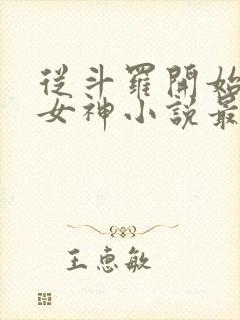 從斗羅開始
女神小說最
王惠敏